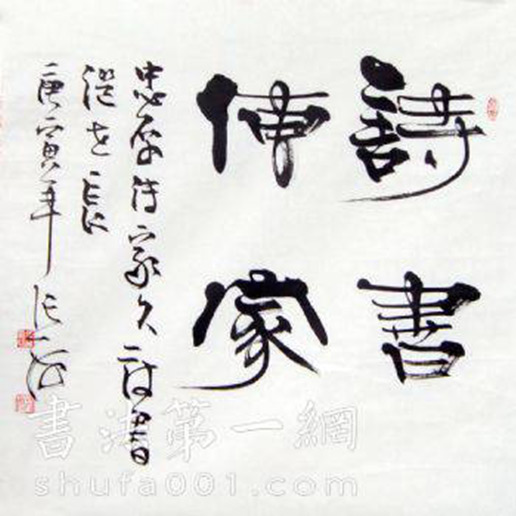 詩書
傳家
忠厚传家久诗書
继世長
庚寅年
書法第一網
shufa001.com